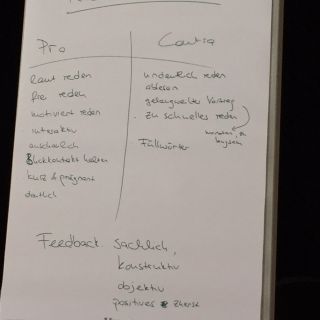 Pro
laut reden
frei reden
motiviert reden
interaktiv
anschaulich
Blickkontakt halten
kurz & prägnant
deutlich
Contra
undeutlich reden
ablesen
gelangweilter Vortrag
zu schnelles reden
monoton, zu
Füllwörter
Feedback sachlich,
konstruktiv
objektiv
positives zuerst